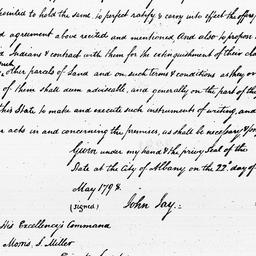 permitted to hold the same is perfect ratify & carry into effect the offers,
d agreement above recited and mentioned And also to propose
id Indians & contract with them for the extinguishment of their cla
such
other parcels of Land and on such terms & conditions as they or
of them shall deem adviseable, and generally on the part of the
this State to make and execute such instruments of writing, and
er acts in and concerning the premises, as shall be necessary & pro
Given under my hand & the privy Seal of the
State at the City of Albany on the 22d day of
May 1798.
(signed) John Jay.
His Excellency's Command
Morris, S. Miller